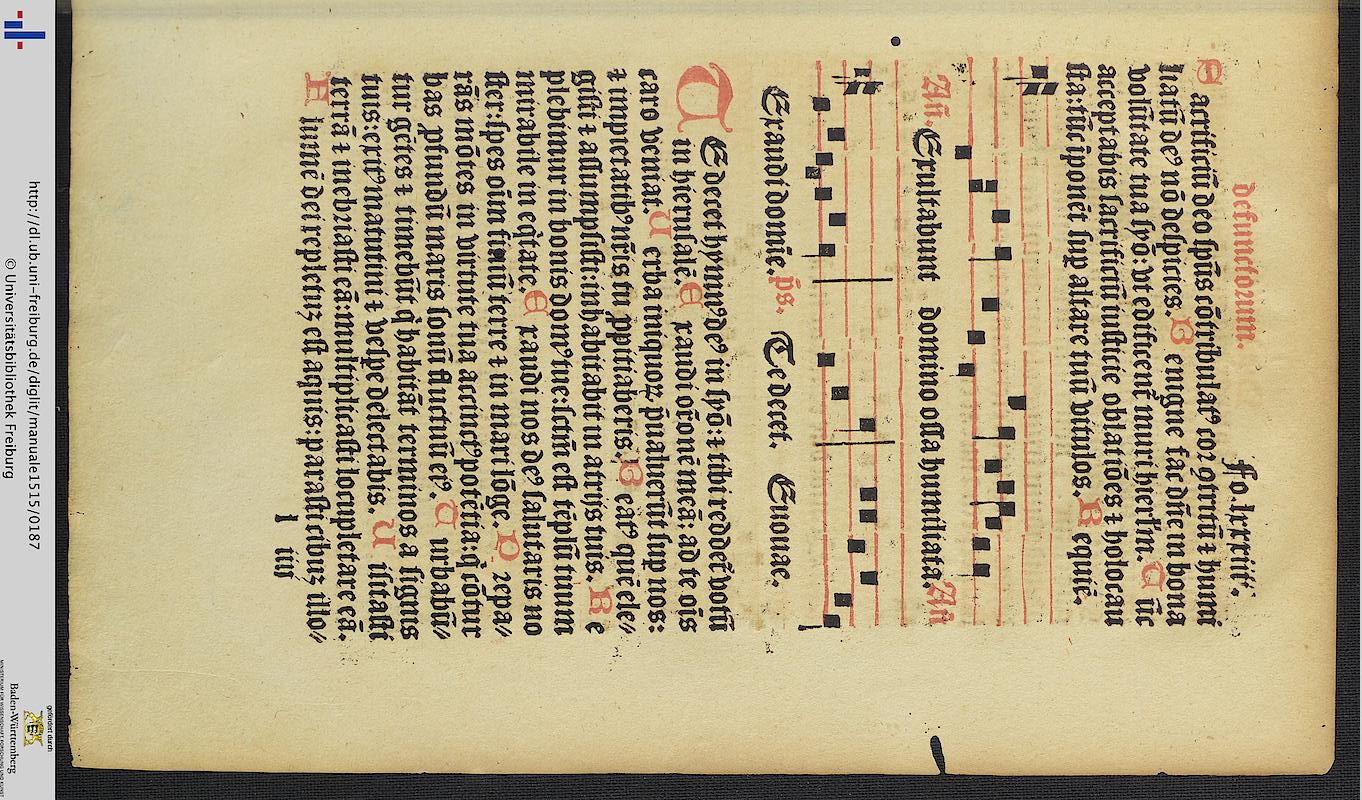 defunctorum. Fo. lxxiiii.
Sacrificiū deo spūs cōtribulatꝰ cor ↄtritū ⁊ humi
liatū deꝰ nō despicies. Benigne fac dñe in bona
volūtate tua syō: vt edificent᷑ muri hierlm̄. Tūc
acceptabis sacrificiū iusticie oblatiōes ⁊ holocau
sta: tūc īponēt sup altare tuū vitulos. Requiē.
Añ. Exultabunt domino ossa humiliata. Añ
Exaudi domīe. ps. Te decet. Euouae.
TE decet hymnꝰ deꝰ in syō: ⁊ tibi reddet᷑ votū
in hierusalē. Exaudi or̄onē meā: ad te oīs
caro veniat. Uerba iniquoꝝ p̄ualuerūt sup nos:
⁊ impietatibꝰ nr̄is tu ꝓpitiaberis. Beatꝰ quē ele⸗
gisti ⁊ assumpsisti: inhabitabit in atrijs tuis. Re
plebimur in bonis domꝰ tue: sctm̄ est tēplū tuum
mirabile in eq̄tate. Exaudi nos deꝰ salutaris no
ster: spes oīm finiū terre ⁊ in mari lōge. Prepa⸗
rās mōtes in virtute tua accinctꝰ potētia: q̇ cōtur
bas ꝓfundū maris sonū fluctuū eiꝰ. Turbabū⸗
tur gētes ⁊ timebūt q̇ habitāt terminos a signis
tuis: exitꝰ matutini ⁊ vespe delectabis. Uisitasti
terrā ⁊ inebriasti eā: multiplicasti locupletare eā.
Flumē dei repletuꝫ est aquis: parasti cibuꝫ illo⸗
l iiij
http://dl.ub.uni-freiburg.de/diglit/manuale1515/0187
© Universitätsbibliothek Freiburg
gefördert durch
Baden-Württemberg
MINISTERIUM FÜR WISSENSCHAFT, FORSCHUNG UND KUNST